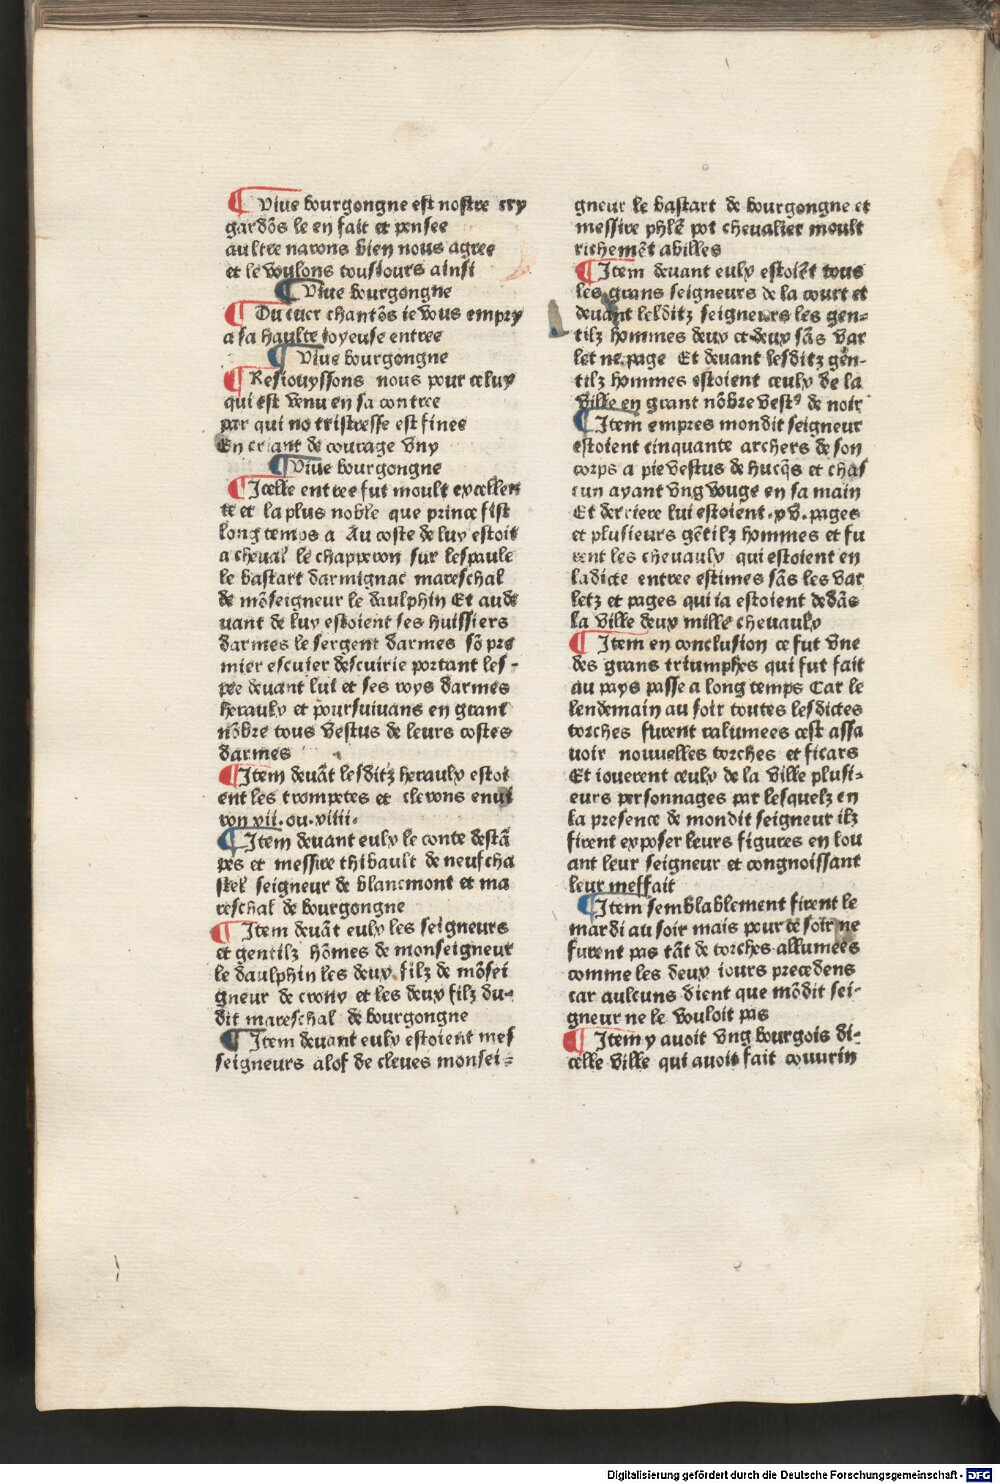 ¶ Viue bourgongne est nostre cry
gardõs le en fait et pensee
aultre nauons bien nous agree
et le voulons tousiours ainsi
¶ Viue bourgongne
¶ Du cuer chantõs ie vous empry
a sa haulte ioyeuse entree
¶ Viue bourgongne
¶ Resiouyssons nous pour celuy
qui est venu en sa contree
par qui no tristresse est finee
En criant de courage vny
¶ Viue bourgongne
¶ Icelle entree fut moult excellen
te et la plus noble que prince fist
long temps a Au coste de luy estoit
a cheual le chapperon sur lespaule
le bastart darmignac mareschal
de mõseigneur le daulphin Et au de
uant de luy estoient ses huissiers
darmes le sergent darmes sõ pre
mier escuier descuirie portant les-
pee deuant lui et ses roys darmes
heraulx et poursuiuans en grant
nõbre tous vestus de leurs costes
darmes
¶ Item deuãt lesditz heraulx estoi
ent les trompetes et clerons enui
ron xii. ou. xiiii.
¶ Item deuant eulx le conte destã
pes et messire thibault de neufcha
stel seigneur de blancmont et ma
reschal de bourgongne
¶ Item deuãt eulx les seigneurs
et gentilz hõmes de monseigneur
le daulphin les deux filz de mõsei
gneur de crouy et les deux filz du-
dit mareschal de bourgongne
¶ Item deuant eulx estoient mes
seigneurs alof de cleues monsei-
gneur le bastart de bourgongne et
messire phlẽ pot cheualier moult
richemẽt abilles
¶ Item deuant eulx estoiẽt tous
les grans seigneurs de la court et
deuant lesditz seigneurs les gen-
tilz hommes deux et deux sãs var
let ne page Et deuant lesditz gẽn-
tilz hommes estoient ceulx de la
ville en grant nõbre vestꝰ de noir
¶ Item empres mondit seigneur
estoient cinquante archers de son
corps a pie vestus de hucq̃s et chas
cun ayant vng vouge en sa main
Et derriere lui estoient .xv. pages
et plusieurs gẽtilz hommes et fu
rent les cheuaulx qui estoient en
ladicte entree estimes sãs les var
letz et pages qui ia estoient dedãs
la ville deux mille cheuaulx
¶ Item en conclusion ce fut vne
des grans triumphes qui fut fait
au pays passe a long temps Car le
lendemain au soir toutes lesdictes
torches furent ralumees cest assa
uoir nouuelles torches et ficars
Et iouerent ceulx de la ville plusi-
eurs personnages par lesquelz en
la presence de mondit seigneur ilz
firent exposer leurs figures en lou
ant leur seigneur et congnoissant
leur meffait
¶ Item semblablement firent le
mardi au soir mais pour ce soir ne
furent pas tãt de torches allumees
comme les deux iours precedens
car aulcuns dient que mõdit sei-
gneur ne le vouloit pas
¶ Item y auoit vng bourgois di-
celle ville qui auoit fait couurir
Digitalisierung gefördert durch die Deutsche Forschungsgemeinschaft - DFG